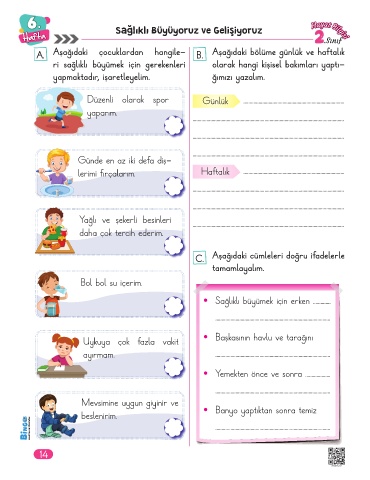 6.
Hafta
Sağlıklı Büyüyoruz ve Gelişiyoruz
Hayat Bilgisi
2.Sınıf
A. Aşağıdaki çocuklardan hangile-
ri sağlıklı büyümek için gerekenleri
yapmaktadır, işaretleyelim.
Düzenli olarak spor
yaparım.
Günde en az iki defa diş-
lerimi fırçalarım.
Yağlı ve şekerli besinleri
daha çok tercih ederim.
Bol bol su içerim.
Uykuya çok fazla vakit
ayırmam.
Mevsimine uygun giyinir ve
beslenirim.
B. Aşağıdaki bölüme günlük ve haftalık
olarak hangi kişisel bakımları yaptı-
ğımızı yazalım.
Günlük
Haftalık
C. Aşağıdaki cümleleri doğru ifadelerle
tamamlayalım.
• Sağlıklı büyümek için erken ..........
• Başkasının havlu ve tarağını
• Yemekten önce ve sonra ..........
• Banyo yaptıktan sonra temiz
BİNGO
14